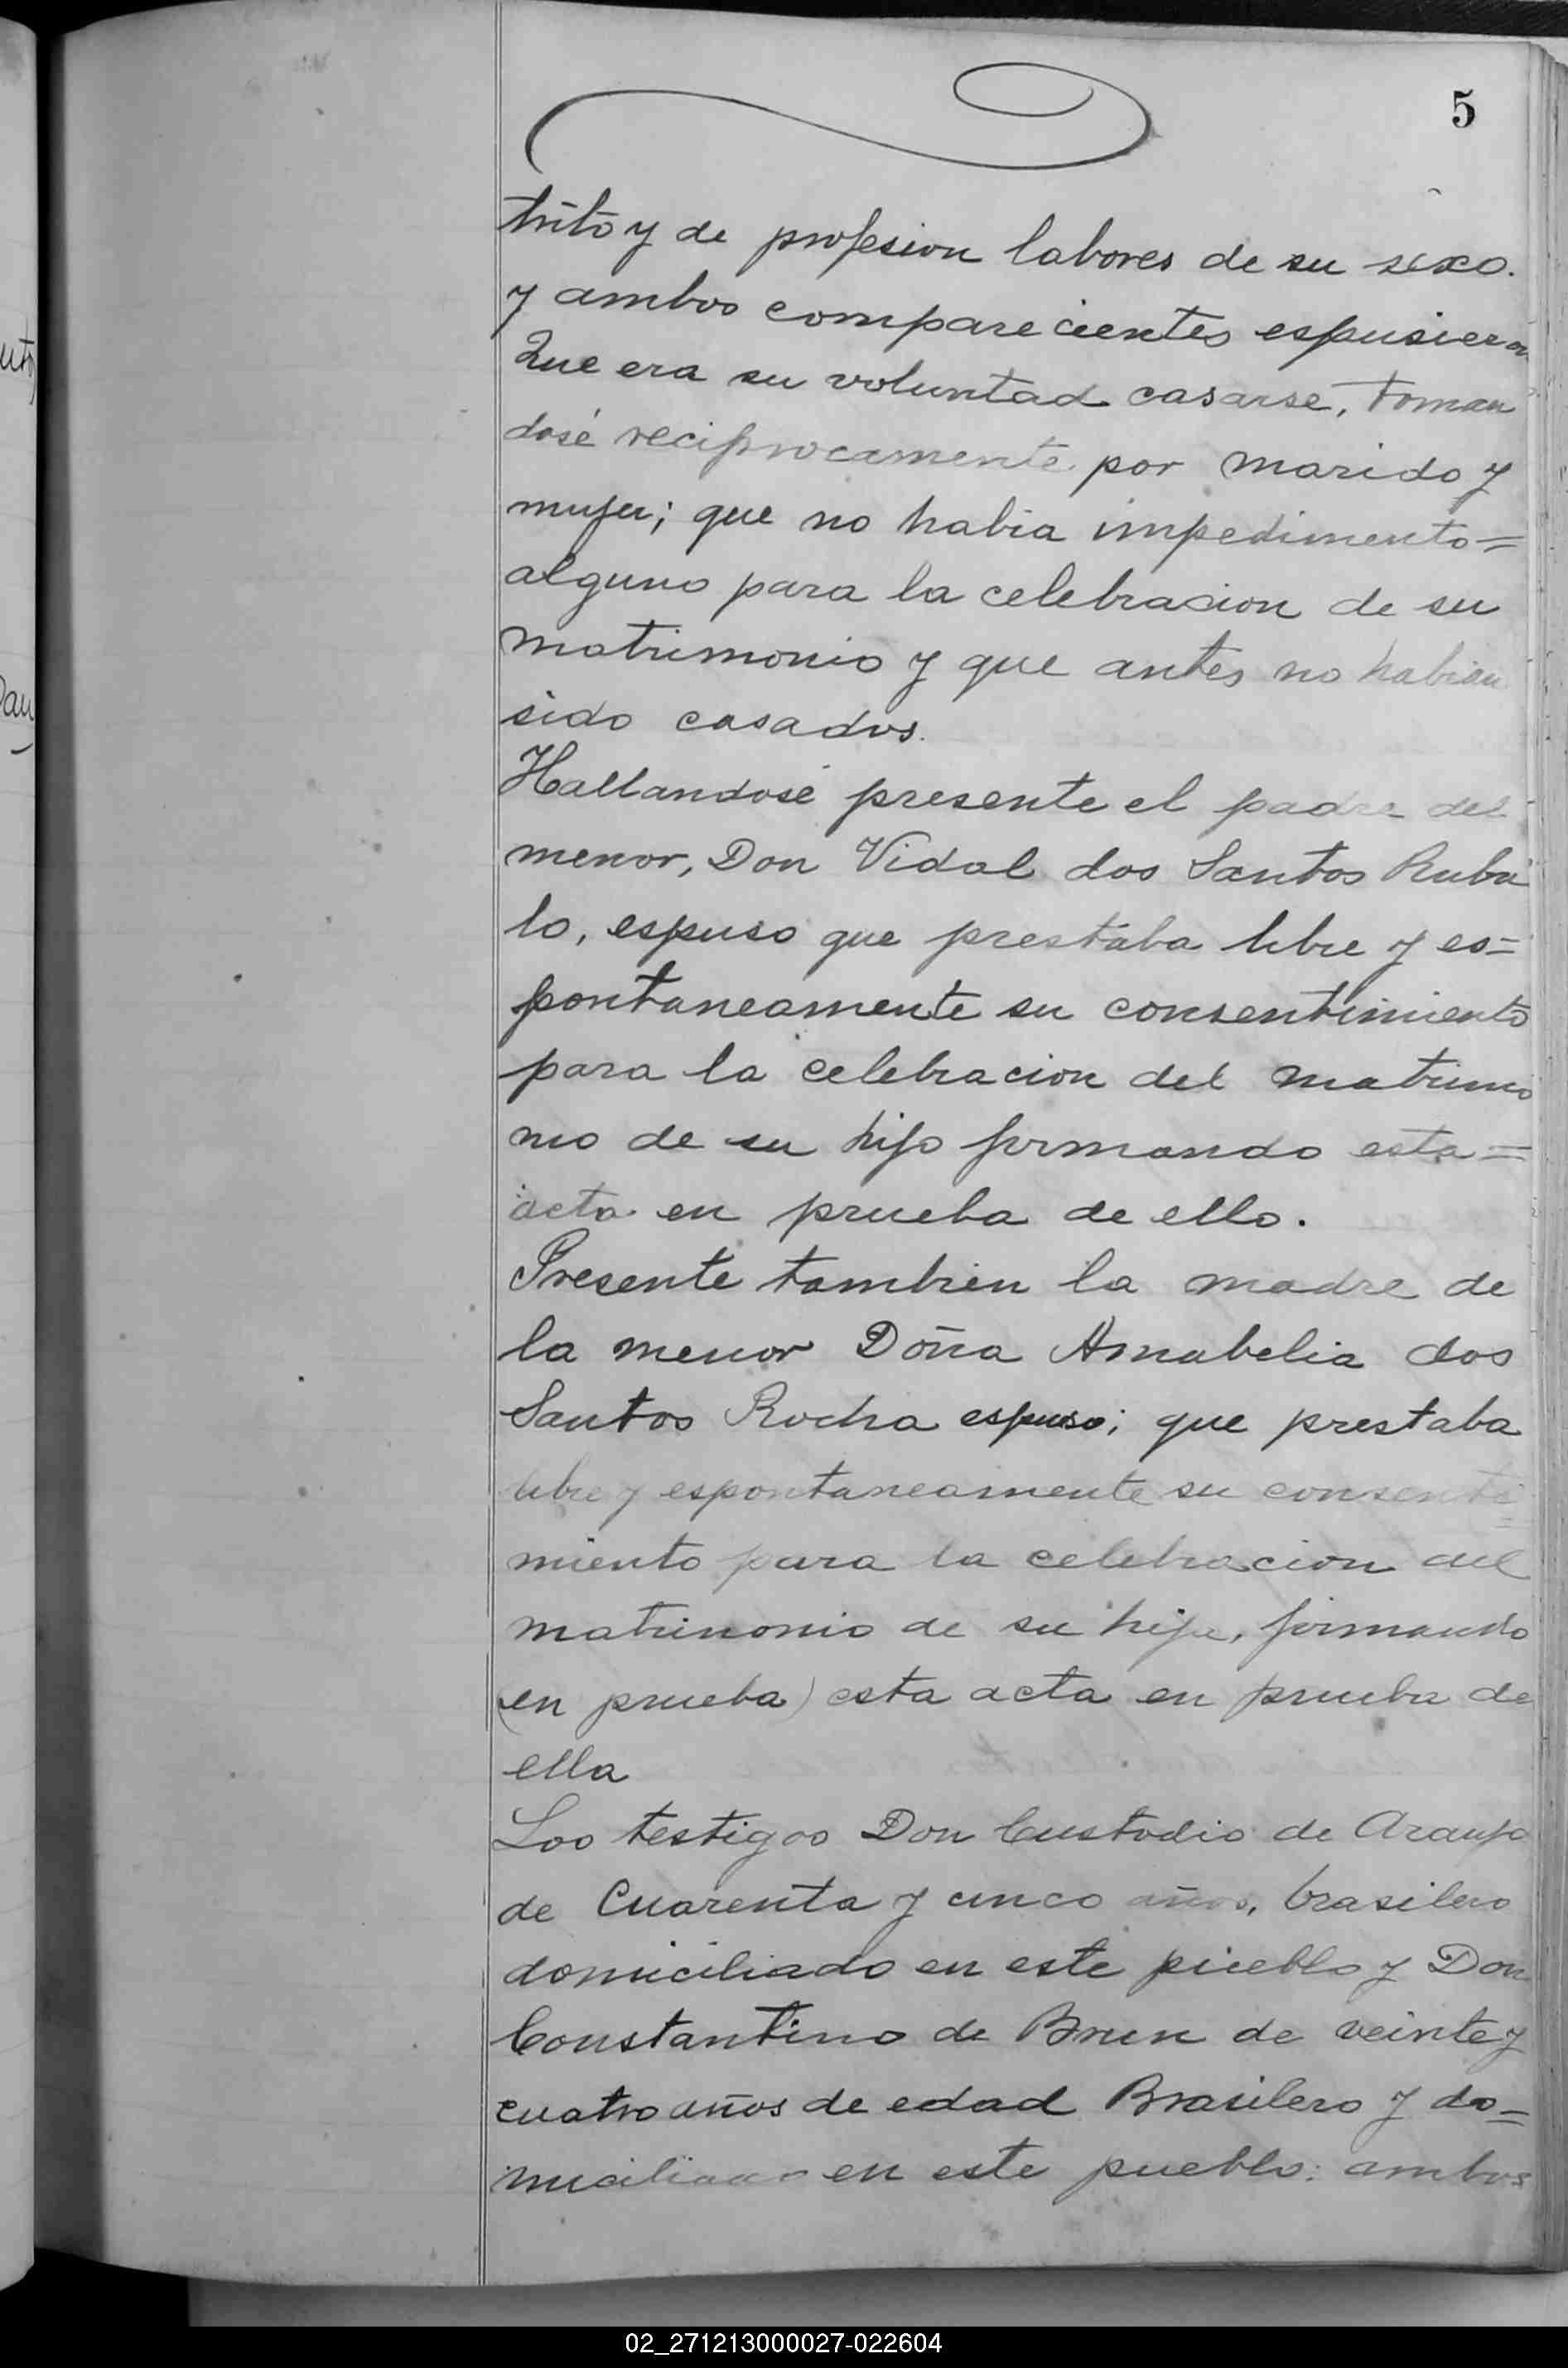 5
trito y de profesion labores de su sexo.
y ambos comparecientes espusieron
Que era su voluntad casarse, toman
dosé reciprocamente por marido y
mujer; que no habia impedimento=
alguno para la celebracion de su
matrimonio y que antes no habian
sido casados.
Hallandosé presente el padre del
menor, Don Vidal dos Santos Ruba
lo, espuso que prestaba libre y es=
pontaneamente su consentimiento
para la celebracion del matrimo
nio de su hijo firmando esta=
acta en prueba de ello.
Presente tambien la madre de
la menor Doña Amabelia dos
Santos Rocha espuso; que prestaba
libre y espontaneamente su consenti=
miento para la celebracion del
matrimonio de su hija, firmando
(en prueba) esta acta en prueba de
ella
Los testigos Don Custodio de Araujo
de Cuarenta y cinco años, brasilero
domiciliado en este pueblo y Don
Constantino de Brun de veinte y
cuatro años de edad Brasilero y do=
miciliado en este pueblo: ambos
02_271213000027-022604